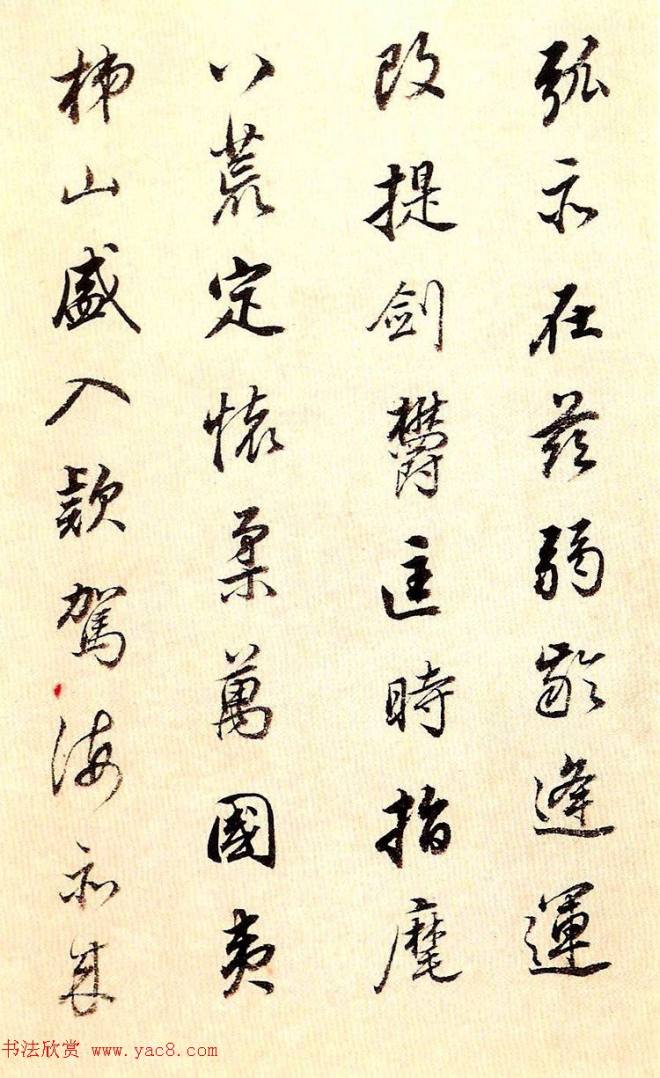 弧亦在茲弱齡逢運
改提劍欝匡時指麾
八荒定懷柔萬國夷
梯山盛入款駕海亦来
书法欣赏 www.yac8.com